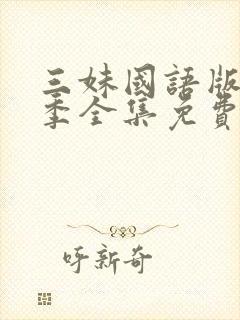 三妹國語版
季全集免費
呀新奇